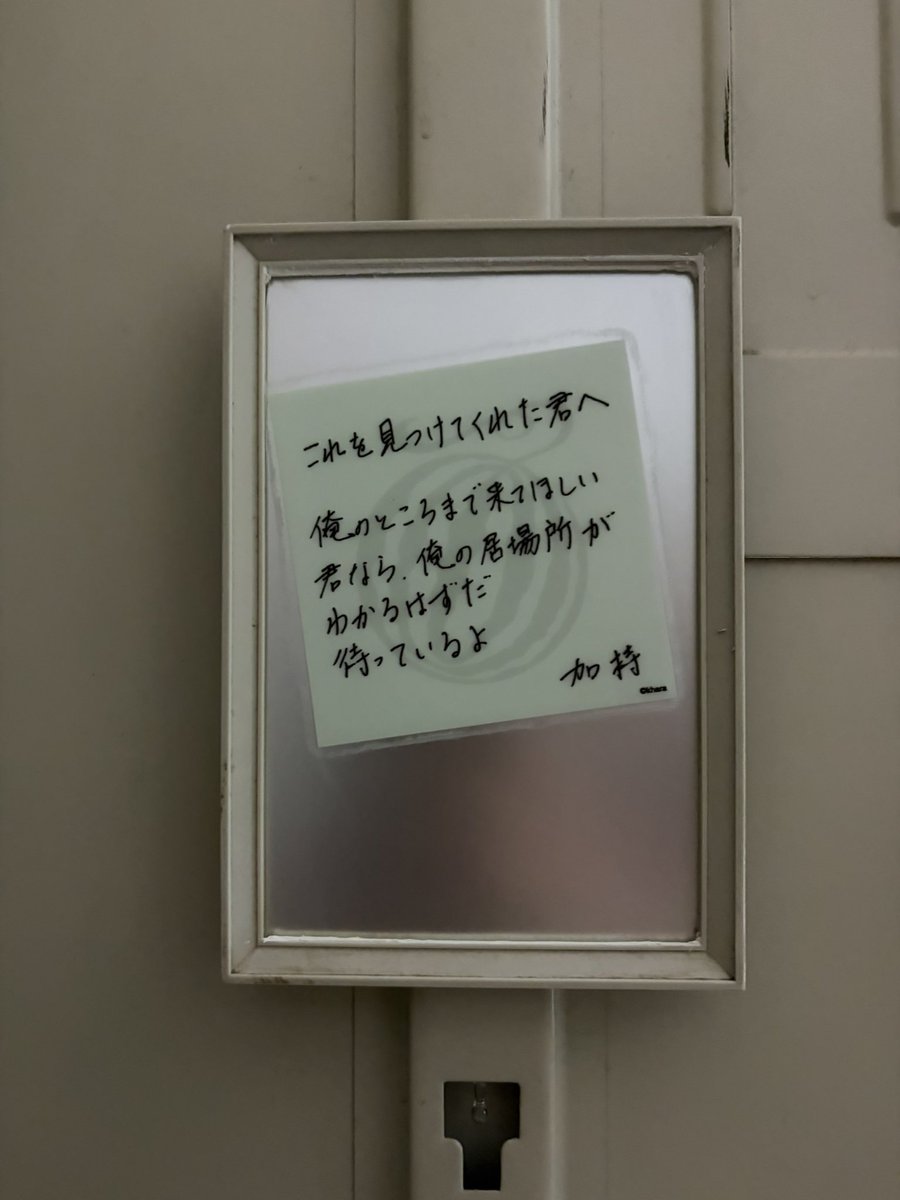 これを見つけてくれた君へ
俺のところまで来てほしい
君なら、俺の居場所が
わかるはずだ
待っているよ
加持
©khara